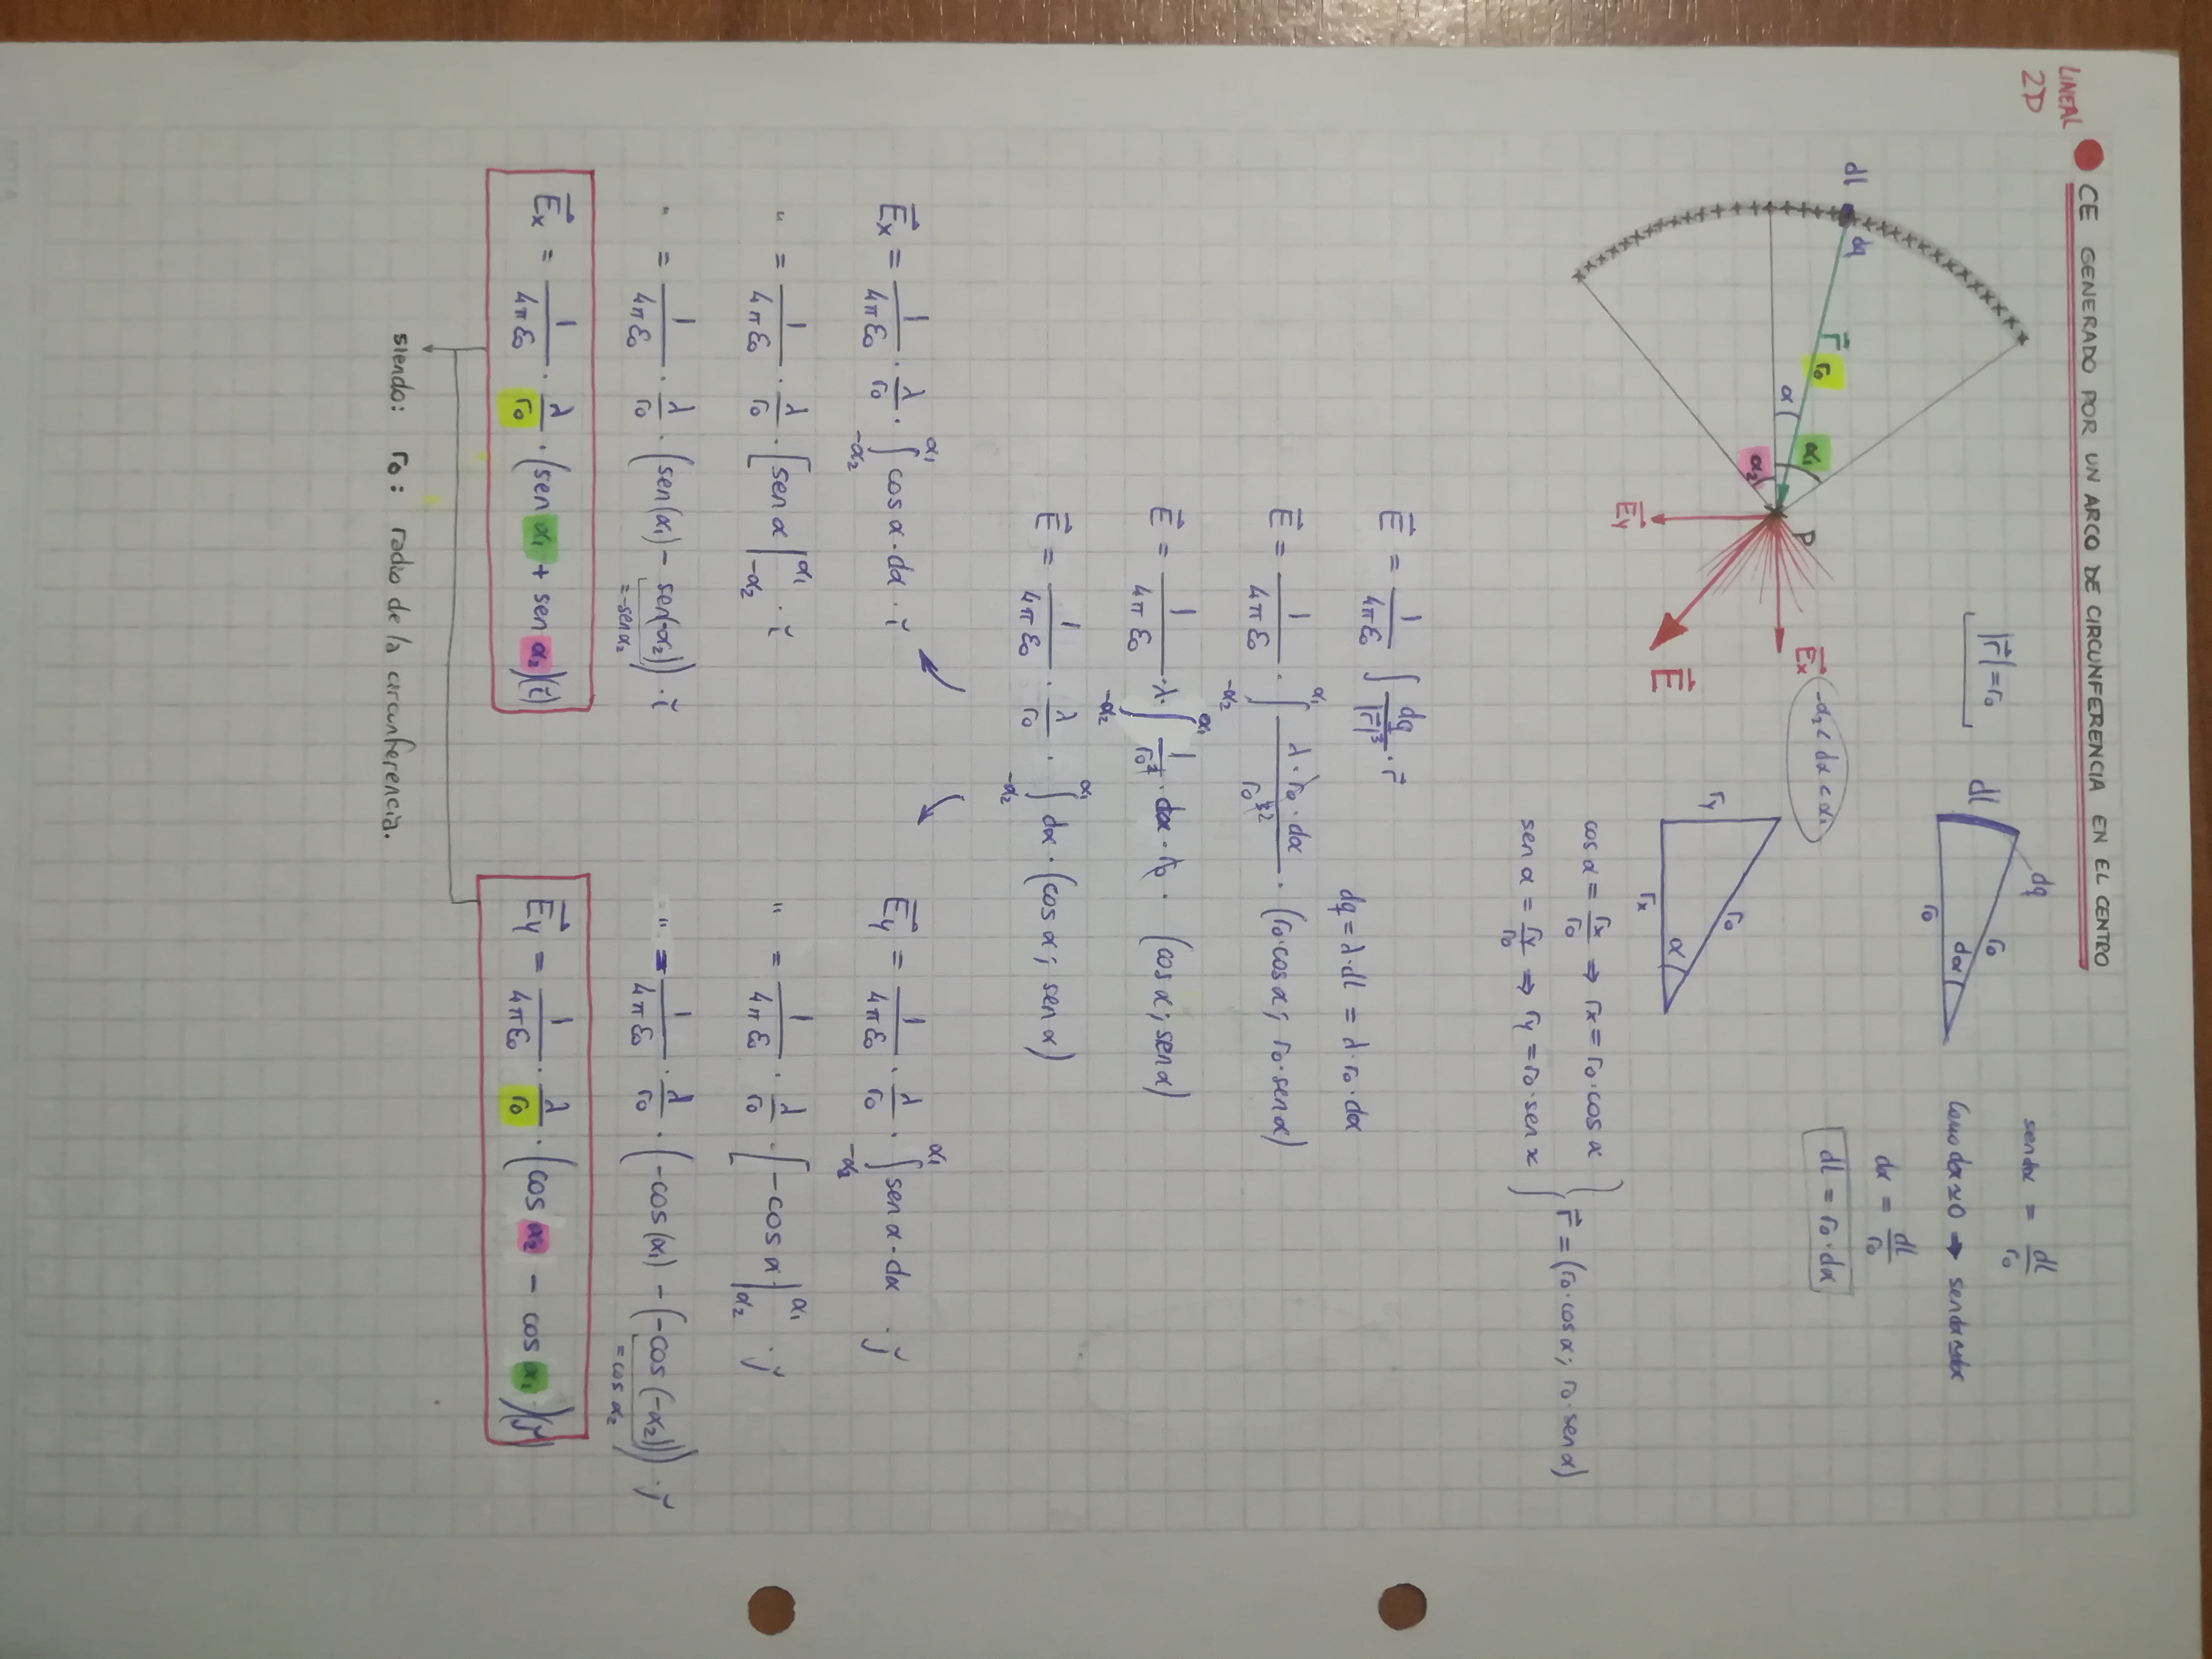 ● CE GENERADO POR UN ARCO DE CIRCUNFERENCIA EN EL CENTRO
LINEAL
2D
|r⃗| = r₀
dq
dl
r₀
dα
r₀
sendα = dl/r₀
Como dα≃0 → sendα≃dα
dα = dl/r₀
dl = r₀·dα
dl
dq
r⃗
r₀
α₁
α
α₂
P
E⃗x
E⃗y
E⃗
-α₂ < dα < α₁
ry
r₀
α
rx
cos α = rx/r₀ ⇒ rx = r₀·cos α
sen α = ry/r₀ ⇒ ry = r₀·sen α
} r⃗ = (r₀·cos α; r₀·sen α)
E⃗ = 1/4πε₀ ∫ dq/|r⃗|³ · r⃗
dq = λ·dl = λ·r₀·dα
E⃗ = 1/4πε₀ · ∫_{-α₂}^{α₁} λ·r₀·dα/r₀³² · (r₀·cos α; r₀·sen α)
E⃗ = 1/4πε₀ · λ · ∫_{-α₂}^{α₁} 1/r₀² · dα · r₀ · (cos α; sen α)
E⃗ = 1/4πε₀ · λ/r₀ · ∫_{-α₂}^{α₁} dα · (cos α; sen α)
E⃗x = 1/4πε₀ · λ/r₀ · ∫_{-α₂}^{α₁} cos α · dα · i
" = 1/4πε₀ · λ/r₀ · [sen α |_{-α₂}^{α₁} · i
" = 1/4πε₀ · λ/r₀ · (sen(α₁) - sen(-α₂)) · i
= -sen α₂
E⃗x = 1/4πε₀ · λ/r₀ · (sen α₁ + sen α₂)(i)
E⃗y = 1/4πε₀ · λ/r₀ · ∫_{-α₂}^{α₁} sen α · dα · j
" = 1/4πε₀ · λ/r₀ · [-cos α |_{α₂}^{α₁} · j
" = 1/4πε₀ · λ/r₀ · (-cos(α₁) - (-cos(-α₂))) · j
= cos α₂
E⃗y = 1/4πε₀ · λ/r₀ · (cos α₂ - cos α₁)(j)
siendo: r₀: radio de la circunferencia.
NOTA